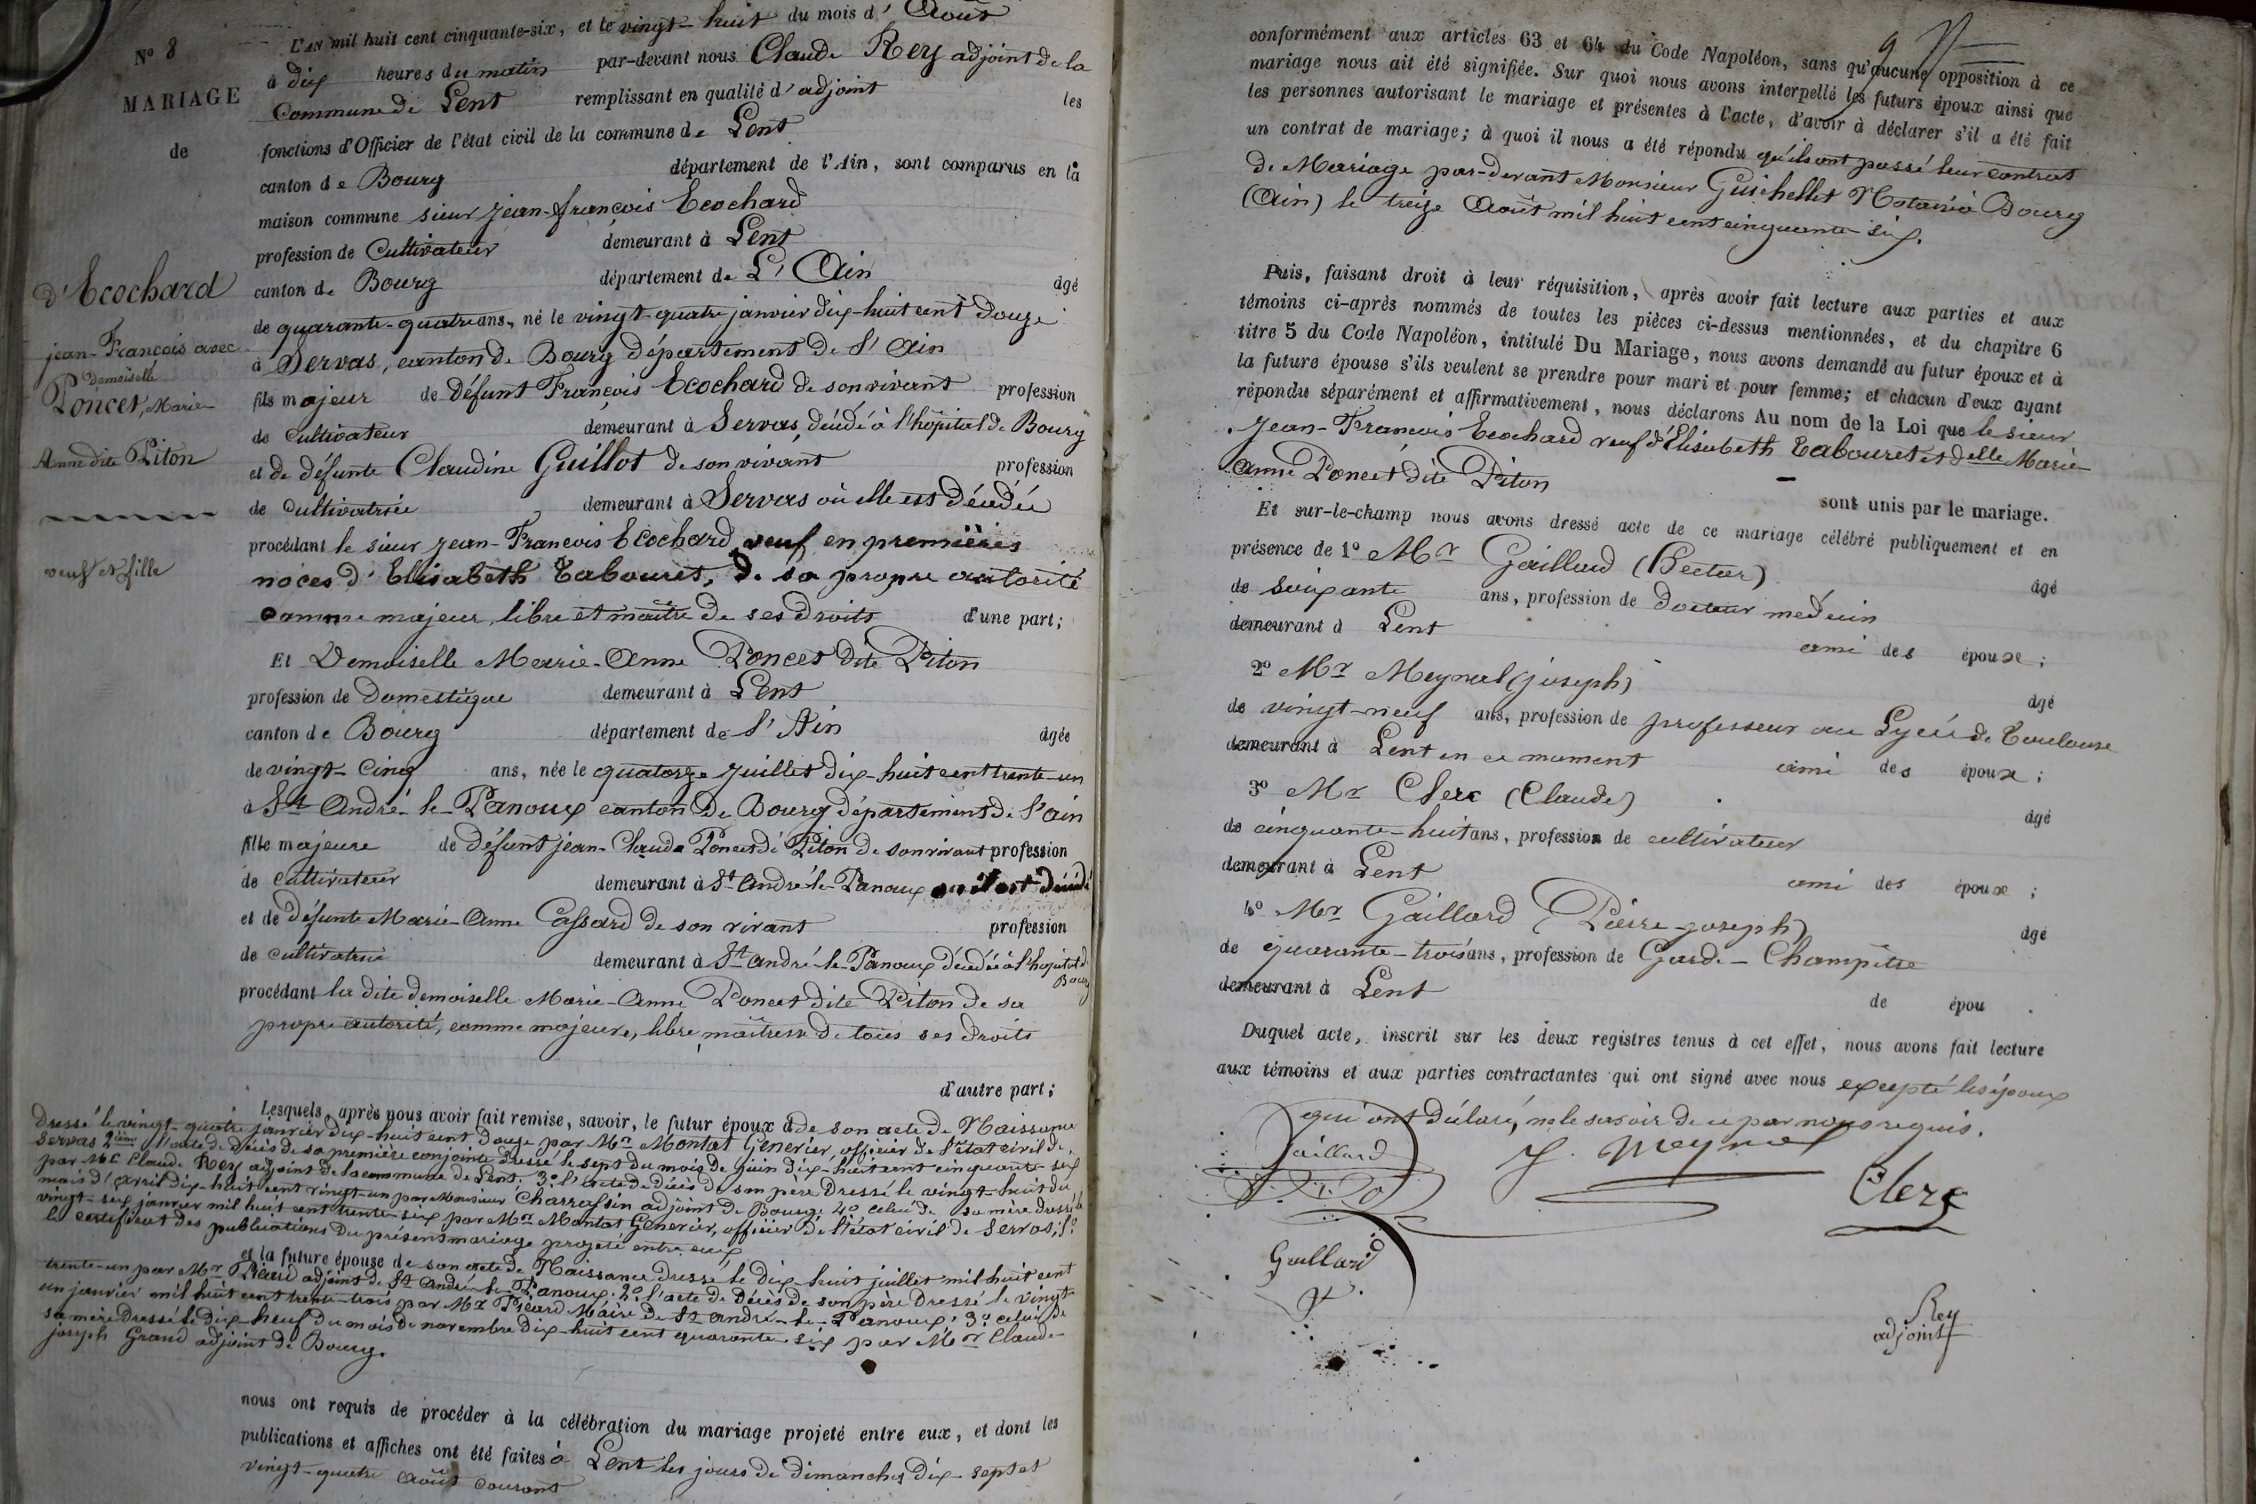 N.º 8
MARIAGE
de
d'Ecochard
jean-François avec
demoiselle
Poncet, Marie
Anne dite Piton
veuf et fille
L'an mil huit cent cinquante-six, et le vingt-huit du mois d'Août
à dix heures du matin par-devant nous Claude Rey adjoint de la
Commune de Lent remplissant en qualité d'adjoint les
fonctions d'Officier de l'état civil de la commune de Lent
canton de Bourg département de l'Ain, sont comparus en la
maison commune sieur jean-françois Ecochard
profession de Cultivateur demeurant à Lent
canton de Bourg département de L'Ain âgé
de quarante-quatre ans, né le vingt-quatre janvier dix-huit cent douze
à Servas, canton de Bourg département de l'Ain
fils majeur de défunt François Ecochard de son vivant profession
de cultivateur demeurant à Servas, décédé à l'hôpital de Bourg
et de défunte Claudine Guillot de son vivant profession
de cultivatrice demeurant à Servas où elle est décédée
procédant le sieur jean-François Ecochard veuf en premières
noces d'Elisabeth Tabouret, de sa propre autorité
comme majeur, libre et maître de ses droits d'une part;
Et Demoiselle Marie-Anne Poncet dite Piton
profession de Domestique demeurant à Lent
canton de Bourg département de l'Ain âgée
de vingt-cinq ans, née le quatorze juillet dix-huit cent trente-un
à St André-le-Panoux canton de Bourg département de l'ain
fille majeure de défunt jean-Claude Poncet dit Piton de son vivant profession
de cultivateur demeurant à St André-le-Panoux où il est décédé
et de défunte Marie-Anne Cassard de son vivant profession
de cultivatrice demeurant à St andré-le-Panoux décédée à l'hopital de
Bourg
procédant la dite demoiselle Marie-Anne Poncet dite Piton de sa
propre autorité, comme majeure, libre, maîtresse de tous ses droits
d'autre part;
Lesquels, après nous avoir fait remise, savoir, le futur époux de son acte de Naissance
Dressé le vingt-quatre janvier dix-huit cent douze par Mr Montat Generier, officier de l'état civil de
Servas 2ième l'acte de décès de sa première conjointe dressé le sept du mois de juin dix-huit cent cinquante-six
par Mr Claude Rey adjoint de la commune de Lent. 3º l'acte de décès de son père dressé le vingt-huit du
mois d'avril dix-huit cent vingt-un par Monsieur Charrassin adjoint de Bourg. 4º celui de sa mère dressé le
vingt-six janvier mil huit cent trente-six par Mr Montat Generier, officier de l'état civil de Servas; 5º
le certificat des publications du présent mariage projeté entre eux
et la future épouse de son acte de Naissance dressé le dix-huit juillet mil huit cent
trente-un par Mr Picard adjoint de St André-le-Panoux. 2º l'acte de décès de son père dressé le vingt-
un janvier mil huit cent trente-trois par Mr Picard Maire de St andré-le-Panoux; 3º celui de
sa mère dressé le dix-neuf du mois de novembre dix-huit cent quarante-six par Mr Claude-
joseph Grand adjoint de Bourg.
nous ont requis de procéder à la célébration du mariage projeté entre eux, et dont les
publications et affiches ont été faites à Lent les jours de dimanches dix-sept et
vingt-quatre août courant
conformément aux articles 63 et 64 du Code Napoléon, sans qu'aucune opposition à ce
mariage nous ait été signifiée. Sur quoi nous avons interpellé les futurs époux ainsi que
les personnes autorisant le mariage et présentes à l'acte, d'avoir à déclarer s'il a été fait
un contrat de mariage; à quoi il nous a été répondu qu'ils ont passé leur contrat
de Mariage par-devant Monsieur Guichellet Notaire à Bourg
(Ain) le treize Août mil huit cent cinquante-six.
Puis, faisant droit à leur réquisition, après avoir fait lecture aux parties et aux
témoins ci-après nommés de toutes les pièces ci-dessus mentionnées, et du chapitre 6
titre 5 du Code Napoléon, intitulé Du Mariage, nous avons demandé au futur époux et à
la future épouse s'ils veulent se prendre pour mari et pour femme; et chacun d'eux ayant
répondu séparément et affirmativement, nous déclarons Au nom de la Loi que le sieur
Jean-François Ecochard veuf d'Elisabeth Tabouret et delle Marie-
Anne Poncet dite Piton
sont unis par le mariage.
Et sur-le-champ nous avons dressé acte de ce mariage célébré publiquement et en
présence de 1º Mr Gaillard (Hector) âgé
de soixante ans, profession de docteur medecin
demeurant à Lent ami des époux;
2º Mr Meynal (joseph) âgé
de vingt-neuf ans, profession de professeur au Lycée de Toulouse
demeurant à Lent en ce moment ami des époux;
3º Mr Clerc (Claude) âgé
de cinquante-huit ans, profession de cultivateur
demeurant à Lent ami des époux;
4º Mr Gaillard (Pierre-joseph) âgé
de quarante-trois ans, profession de Garde-Champêtre
demeurant à Lent de épou .
Duquel acte, inscrit sur les deux registres tenus à cet effet, nous avons fait lecture
aux témoins et aux parties contractantes qui ont signé avec nous excepté les époux
qui ont déclaré, ne le savoir de ce par nous requis.
Gaillard
J. Meynal
Clerc
Gaillard
Rey
adjoint